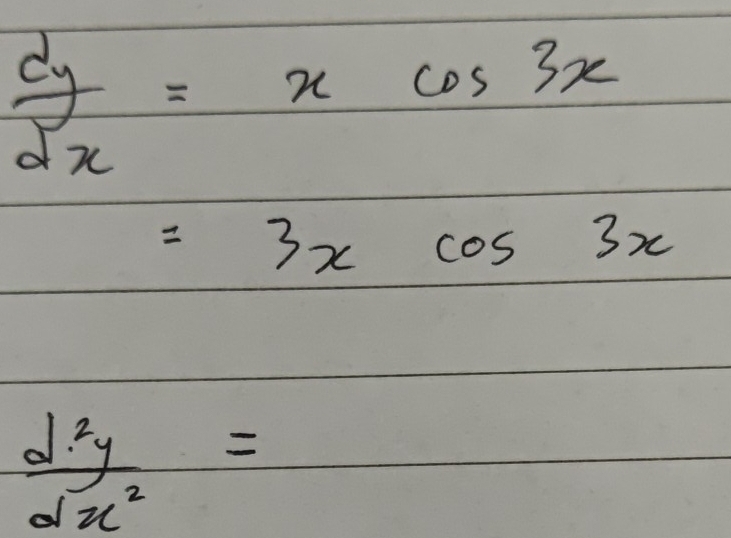 dy/dx = x cos 3x
= 3x cos 3x
d²y/dx² =